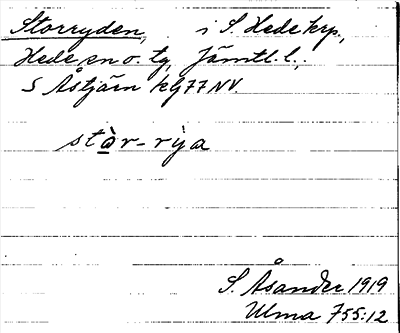 Storryden, i S. Hede krp.,
Hede sn o. tg, Jämtl. l.,
S Åstjärn kg 77 NV.
stò̲r-rỳa
S. Åsander 1919
Ulma 755:12